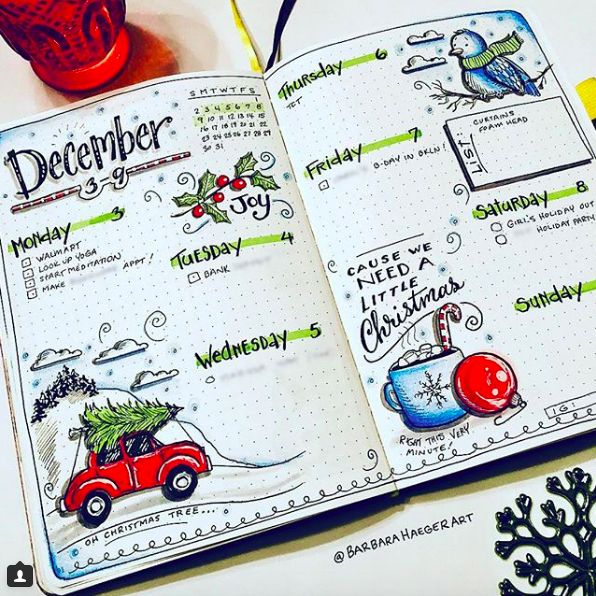 December
3-9
S M T W T F S
1
2 3 4 5 6 7 8
9 10 11 12 13 14 15
16 17 18 19 20 21 22
23 24 25 26 27 28 29
30 31
JOY
MONDAY 3
WALMART
LOOK UP YOGA
START MEDITATION
MAKE APPT!
TUESDAY 4
BANK
WEDNESDAY 5
OH CHRISTMAS TREE...
THURSDAY 6
TET
FRIDAY 7
B-DAY IN BKLN!
LIST:
CURTAINS
FOAM HEAD
SATURDAY 8
GIRL'S HOLIDAY OUT
HOLIDAY PARTY
SUNDAY
CAUSE WE
NEED A
LITTLE
Christmas
RIGHT THIS VERY
MINUTE!
161
@BARBARAHAEGERART